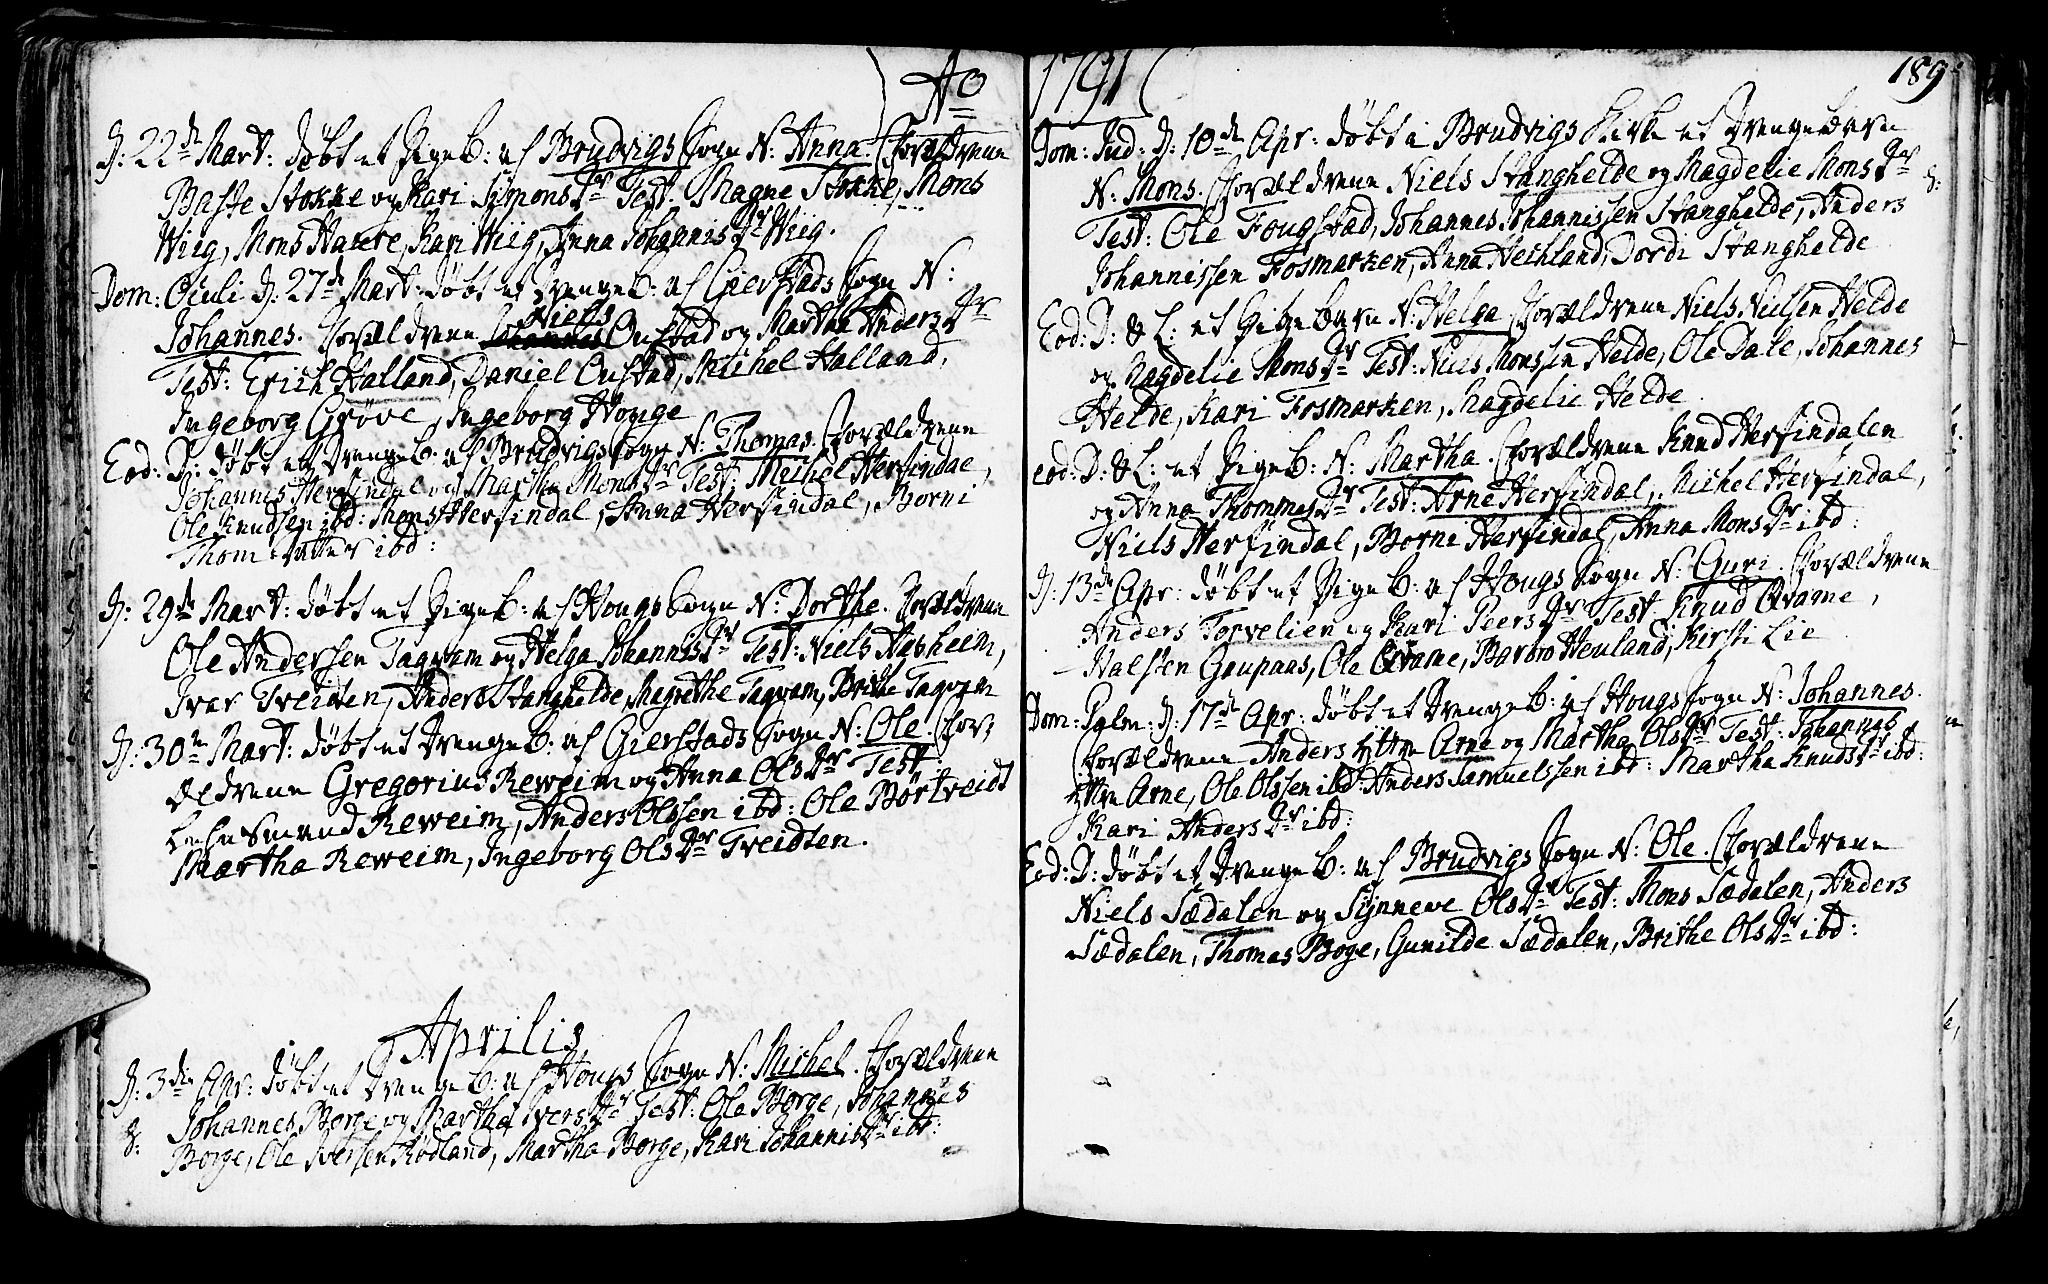 Ao
D: 22de Mart: døbt et Pige B: af Brudvigs Sogn N: Anna. Forældrene
Baste Stokke og Kari Simons Dr Test. Magne Stokke, Mons
Wiig, Mons Havre, Kari Wiig, Anna Johannis Dr Wiig.
Dom: Oculi D: 27de Mart: døbt et Drenge B: af Gierstads Sogn N:
Johannes. Forældrene Niels Oustad og Martha Anders Dr
Test: Erich Halland, Daniel Oustad, Michel Halland,
Ingeborg Grøve, Ingeborg Houge
Eod: D: døbt et Drenge B: af Brudvigs Sogn N: Thomas. Forældrene
Johannes Herfindal og Martha Mons Dr Test: Michel Herfindal,
Ole Knudsen ibd: Mons Herfindal, Anna Herfindal, Borni
Thom: datter ibd:
D: 29de Mart: døbt et Pige B: af Hougs Sogn N: Dorthe. Forældrene
Ole Anderssen Tagvam og Helga Johannis Dr Test: Niels Hasheim,
Iver Tveiten, Anders Stanghelde, Magrethe Tagvam, Brithe Tagvam
D: 30te Mart: døbt et Drenge B: af Gierstads Sogn N: Ole. For
ældrene Gregorius Reweim og Anna Ols Dr Test:
Lehnsmand Reweim, Anders Olssen ibd: Ole Børtveidt
Martha Reweim, Ingeborg Ols Dr Tveidten.
Aprilis
D: 3die Apr: døbt et Drenge B: af Hougs Sogn N: Michel. Forældrene
8: Johannes Borge og Martha Ivers Dr Test: Ole Borge, Johannes
Borge, Ole Iversen Rødland, Martha Borge, Kari Johannis Dr ibd:
1791
189
Dom: Jud: D: 10de Apr: døbt i Brudvigs Kirke et Drengebarn
N: Mons. Forældrene Niels Stanghelde og Magdelie Mons Dr
8:
Test: Ole Fougstad, Johannes Johannissen Stanghelde, Anders
Johannissen Fosmarken, Anna Heshland, Dordi Stanghelde
Eod: D: & L: et Pigebarn N: Helga. Forældrene Niels Nielsen Helde
og Magdelie Mons Dr Test: Niels Monssen Helde, Ole Dale, Johannes
Helde, Kari Fosmarken, Magdelie Helde.
eod: D: & L: et Pige B: N: Martha. Forældrene Knud Herfindalen
og Anna Thommes Dr Test: Arne Herfindal, Michel Herfindal,
Niels Herfindal, Borni Herfindal, Anna Mons Dr ibd:
D: 13de Apr: døbt et Pige B: af Hougs Sogn N: Guri. Forældrene
Anders Torvelien og Kari Peers Dr Test Knud Qvame,
Halsten Gaupaas, Ole Qvame, Barbro Heuland, Kirsti Lie
Dom: Palm: D: 17de Apr: døbt et Drenge B: af Hougs Sogn N: Johannes.
Forældrene Anders Yttre Arne og Martha Ols Dr Test: Johannes
Yttre Arne, Ole Olssen ibd: Anders Samuelssen ibd: Martha Knuds Dr ibd:
Kari Anders Dr ibd:
Eod: D: døbt et Drenge B: af Brudvigs Sogn N: Ole. Forældrene
Niels Sædalen og Synneve Ols Dr Test: Mons Sædalen, Anders
Sædalen, Thomas Boge, Gunilde Sædalen, Brithe Ols Dr ibd: